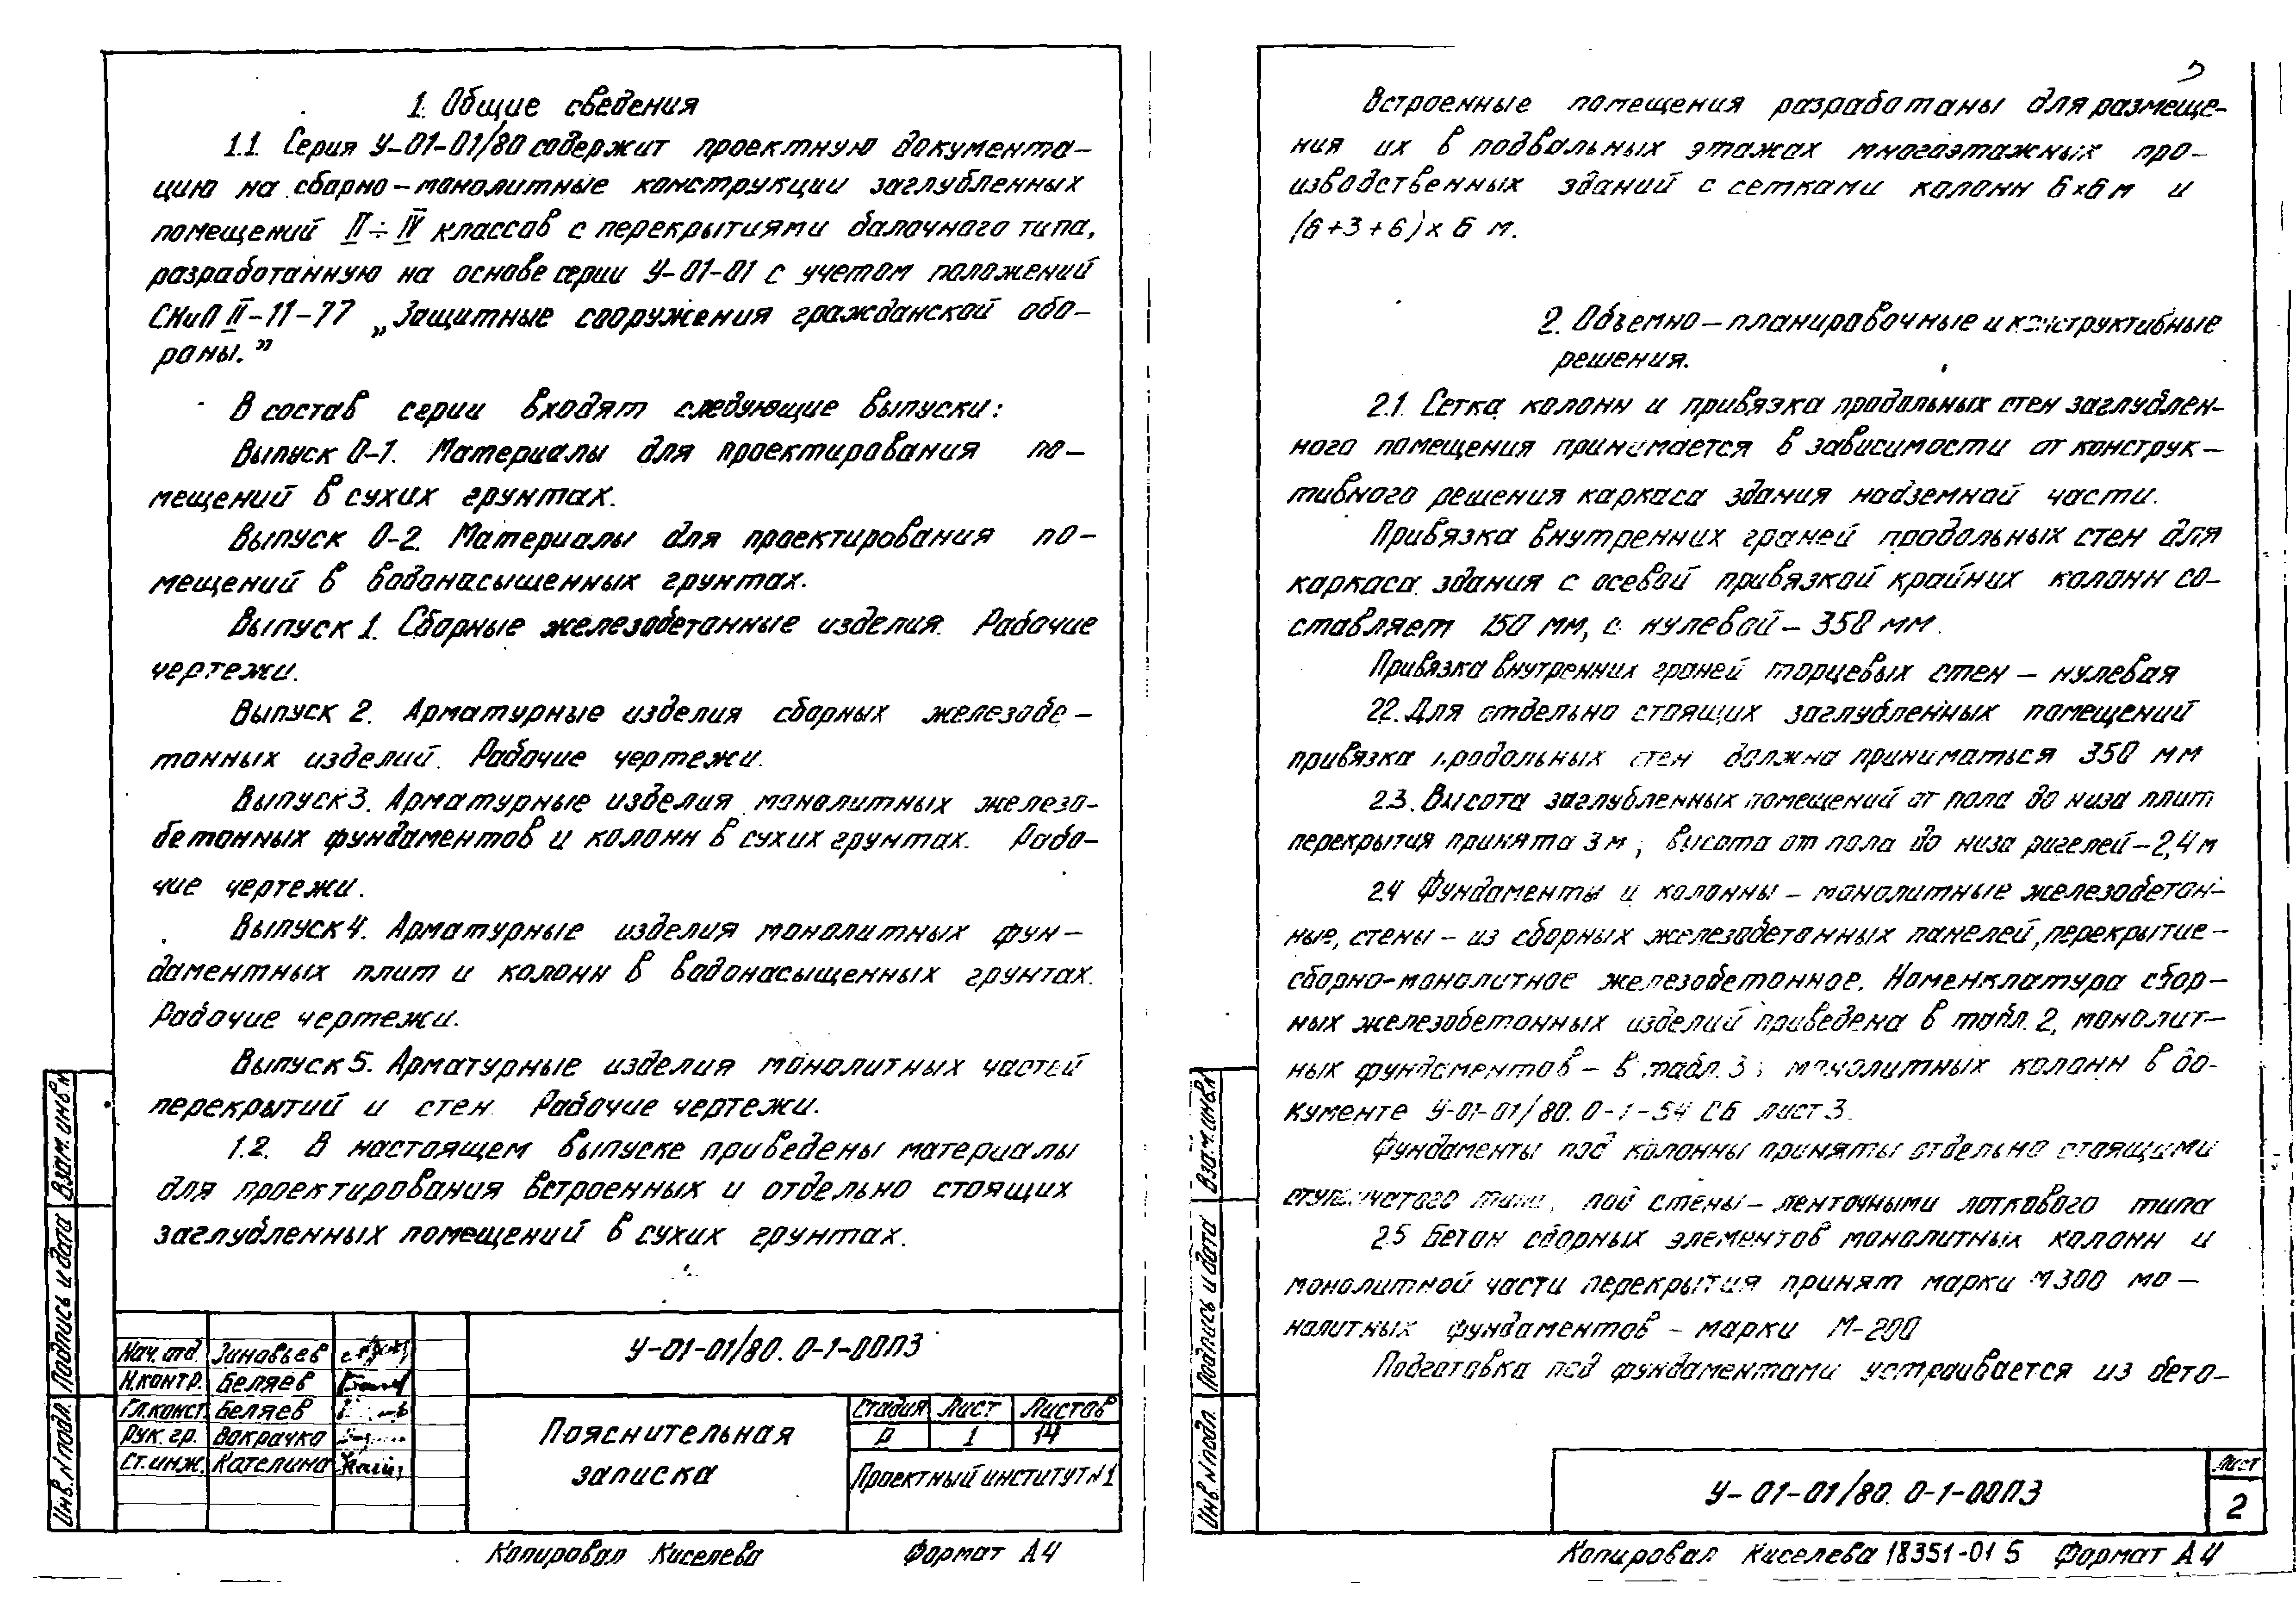 1. Общие сведения
1.1. Серия У-01-01/80 содержит проектную документа-
цию на сборно-монолитные конструкции заглубленных
помещений II÷IV классов с перекрытиями балочного типа,
разработанную на основе серии У-01-01 с учетом положений
СНиП II-11-77 „Защитные сооружения гражданской обо-
роны.”
В состав серии входят следующие выпуски:
Выпуск 0-1. Материалы для проектирования по-
мещений в сухих грунтах.
Выпуск 0-2. Материалы для проектирования по-
мещений в водонасышенных грунтах.
Выпуск 1. Сборные железобетонные изделия. Рабочие
чертежи.
Выпуск 2. Арматурные изделия сборных железобе-
тонных изделий. Рабочие чертежи.
Выпуск 3. Арматурные изделия монолитных железо-
бетонных фундаментов и колонн в сухих грунтах. Рабо-
чие чертежи.
Выпуск 4. Арматурные изделия монолитных фун-
даментных плит и колонн в водонасыщенных грунтах.
Рабочие чертежи.
Выпуск 5. Арматурные изделия монолитных частей
перекрытий и стен. Рабочие чертежи.
1.2. В настоящем выпуске приведены материалы
для проектирования встроенных и отдельно стоящих
заглубленных помещений в сухих грунтах.
Взам. инв. №
Подпись и дата
Инв. N подл.
Нач. отд. Зиновьев
Н.контр. Беляев
Гл.конст. Беляев
Рук. гр. Вакрачко
Ст.инж. Кателина
У-01-01/80. 0-1-00ПЗ
Пояснительная
записка
Стадия Лист Листов
Р 1 14
Проектный институт N1
Копировал Киселева Формат А4
Встроенные помещения разработаны для размеще-
ния их в подвальных этажах многоэтажных про-
изводственных зданий с сетками колонн 6×6 м и
(6+3+6)×6 м.
2. Объемно-планировочные и конструктивные
решения.
2.1. Сетка колонн и привязка продольных стен заглублен-
ного помещения принимается в зависимости от конструк-
тивного решения каркаса здания надземной части.
Привязка внутренних граней продольных стен для
каркаса здания с осевой привязкой крайних колонн со-
ставляет 150 мм, с нулевой - 350 мм.
Привязка внутренних граней торцевых стен - нулевая
2.2. Для отдельно стоящих заглубленных помещений
привязка продольных стен должна приниматься 350 мм
2.3. Высота заглубленных помещений от пола до низа плит
перекрытия принята 3 м, высота от пола до низа ригелей - 2,4 м
2.4 Фундаменты и колонны - монолитные железобетон-
ные, стены - из сборных железобетонных панелей, перекрытие -
сборно-монолитное железобетонное. Номенклатура сбор-
ных железобетонных изделий приведена в табл. 2, монолит-
ных фундаментов - в табл. 3; монолитных колонн в до-
кументе У-01-01/80. 0-1-54 СБ лист 3.
Фундаменты под колонны приняты отдельно стоящими
ступенчатого типа, под стены - ленточными лоткового типа
2.5 Бетон сборных элементов монолитных колонн и
монолитной части перекрытия принят марки М300 мо-
нолитных фундаментов - марки М-200
Подготовка под фундаментами устраивается из бето-
Взам. инв. №
Подпись и дата
Инв. N подл.
У-01-01/80. 0-1-00ПЗ
Лист
2
Копировал Киселева 18351-01 5 Формат А4